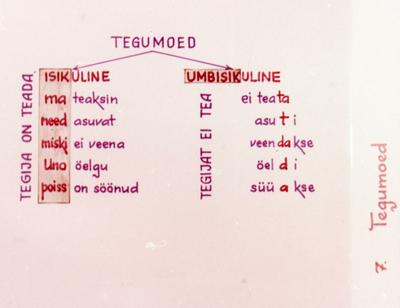 TEGUMOED
ISIKULINE
UMBISIKULINE
TEGIJA ON TEADA
ma teaksin
need asuvat
miski ei veena
Uno öelgu
poiss on söönud
TEGIJAT EI TEA
ei teata
asuti
veendakse
öeldi
süüakse
7. Tegumoed